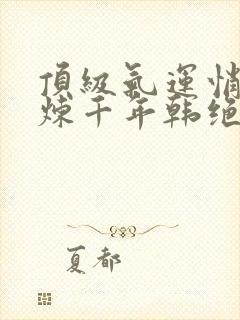 頂級氣運悄
煉千年韩绝
夏都